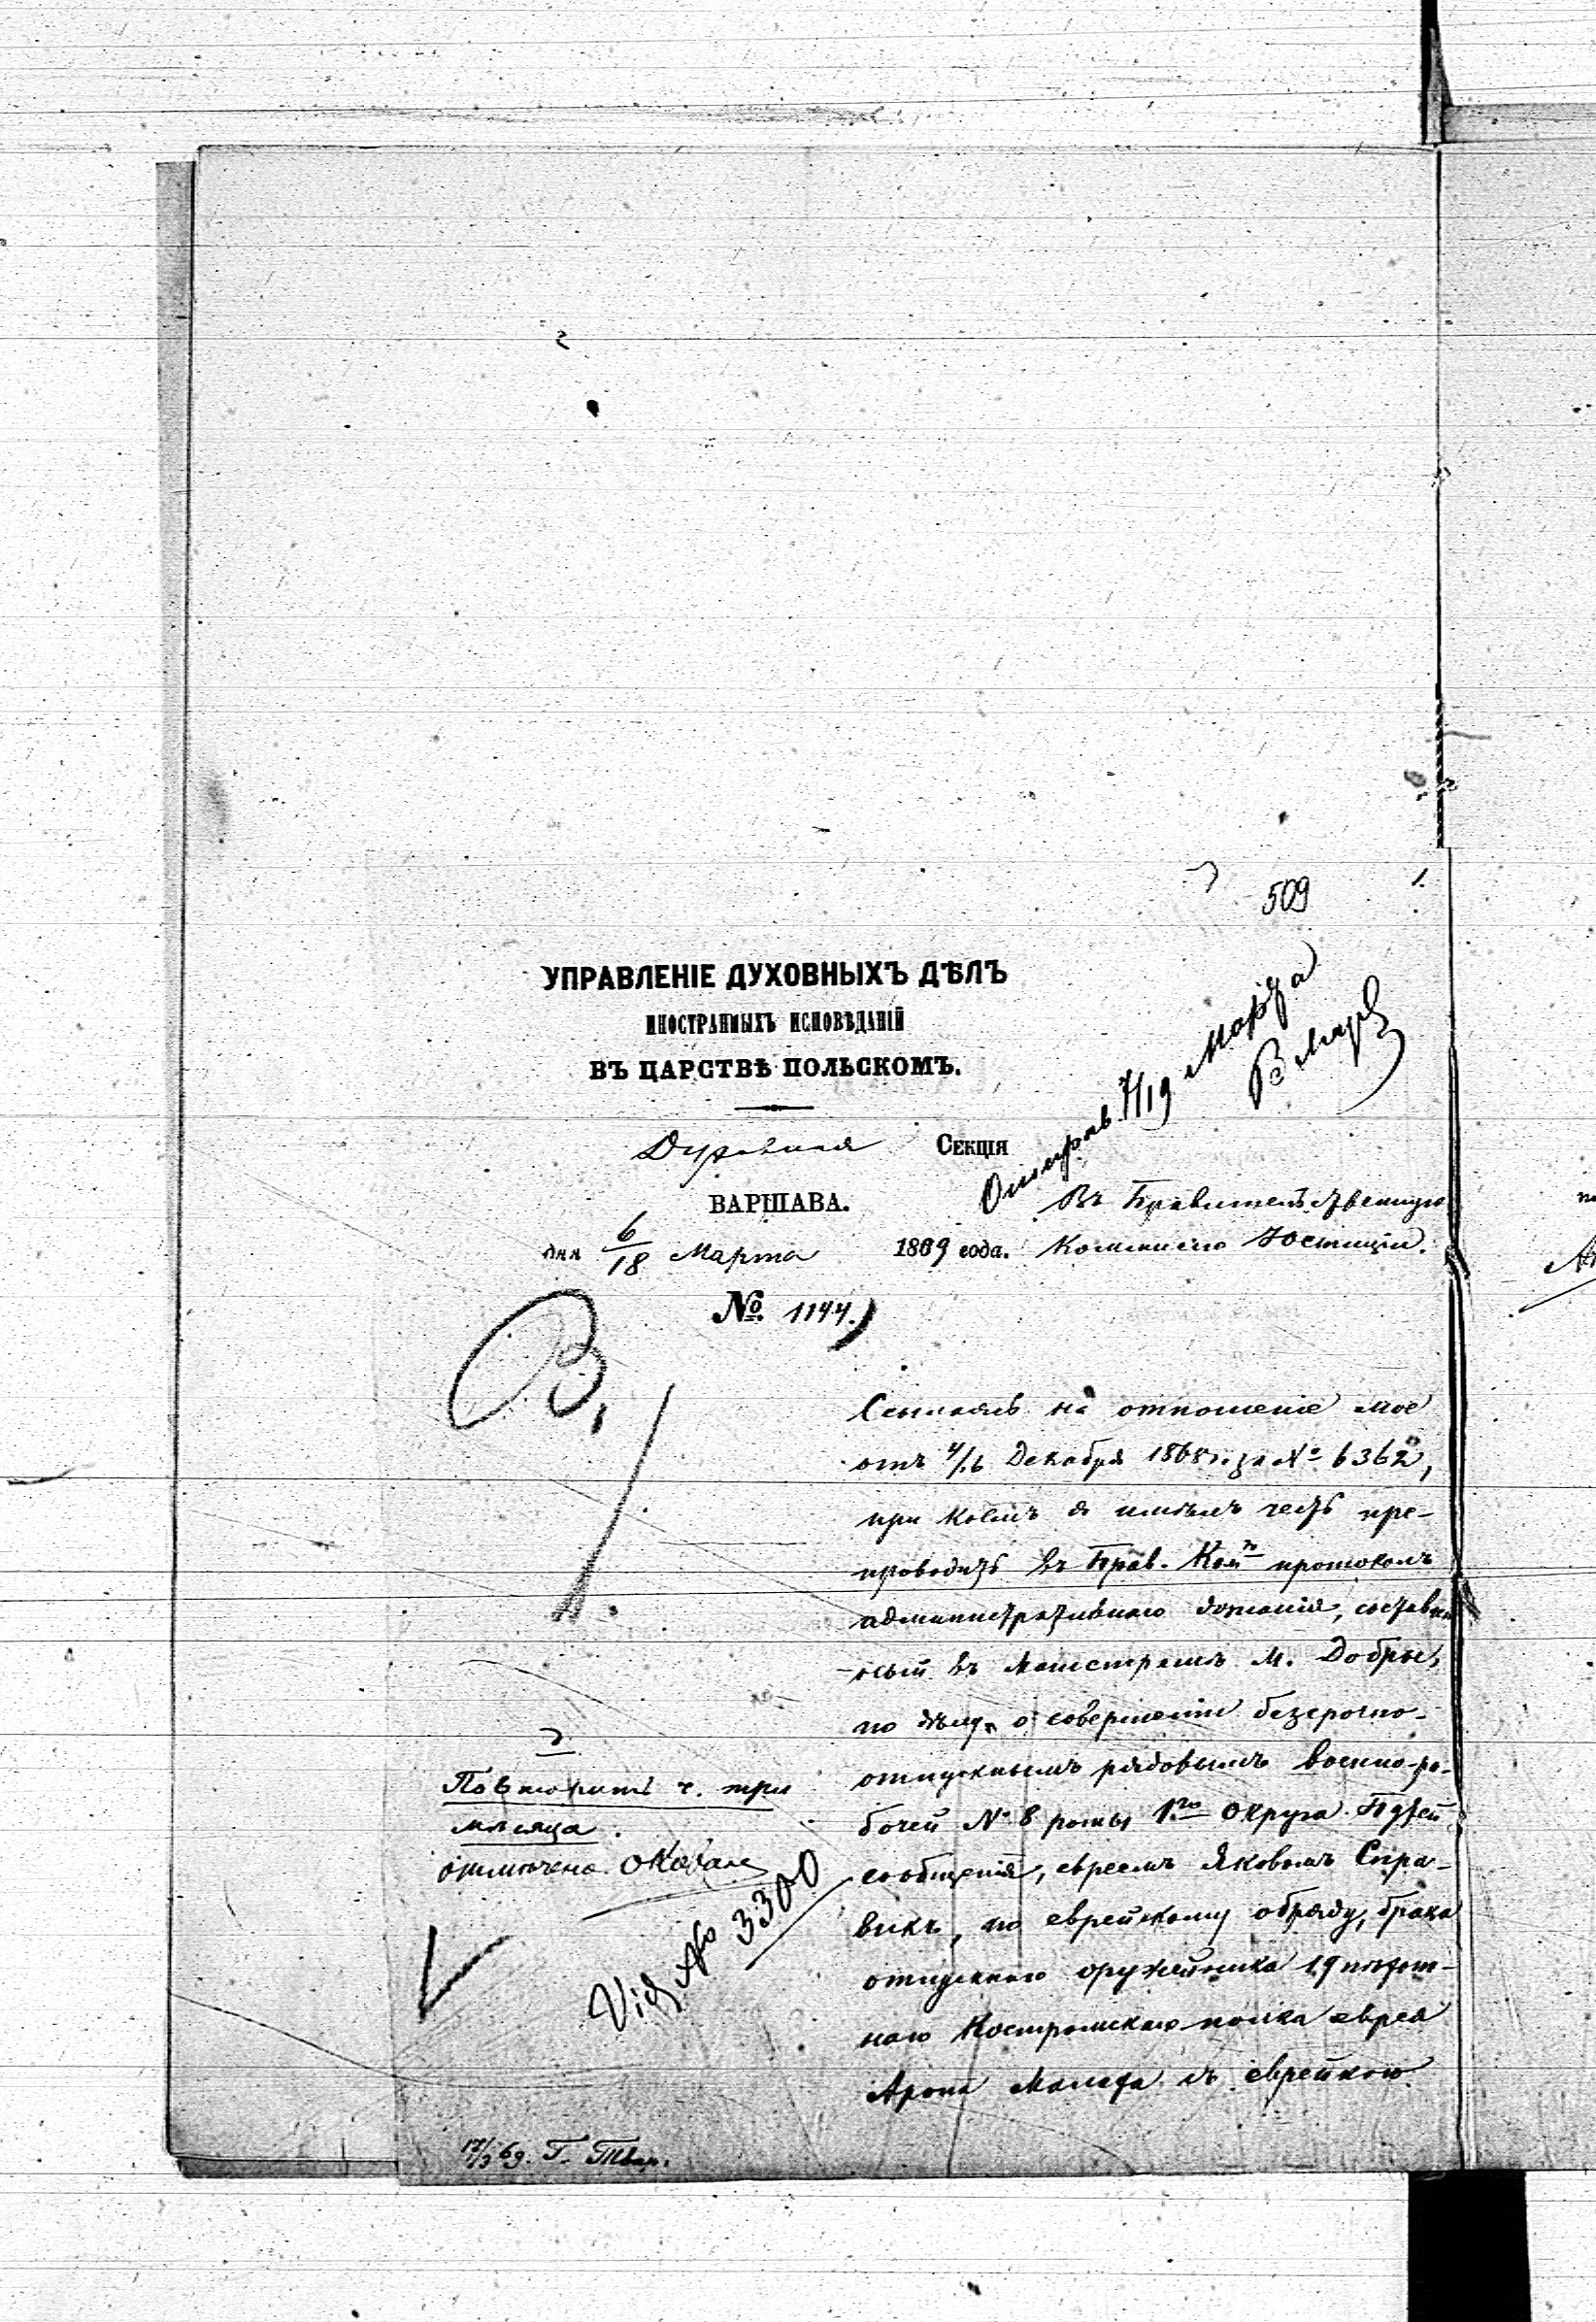 509
1.
УПРАВЛЕНІЕ ДУХОВНЫХЪ ДѢЛЪ
ИНОСТРАННЫХЪ ИСПОВѢДАНІЙ
ВЪ ЦАРСТВѢ ПОЛЬСКОМЪ.
Отправ. 7/19 Марта
Духовная Секція
ВАРШАВА.
дня 6/18 Марта 1869 года.
№ 1144.
Въ Правительственную
Коммисію Юстиціи.
Ссылаясь на отношеніе мое
отъ 4/16 Декабря 1868 г. за № 6362,
при коемъ я имѣлъ честь пре-
проводить въ Прав. Ком. протоколъ
административнаго дознанія, составлен
ный въ Магистратѣ м. Добры,
по дѣлу о совершеніи безсрочно-
отпускнымъ рядовымъ военно-ра-
бочей № 8 роты 1го Округа Путей
сообщенія, евреемъ Яковомъ
по еврейскому обряду, брака
отпускнаго оружейника 19 пѣхот-
наго Костромскаго полка еврея
Арона съ еврейкою
Повторить ч. три
мѣсяца.
отмѣчено
Vid. No 3300
17/3 69. Г.